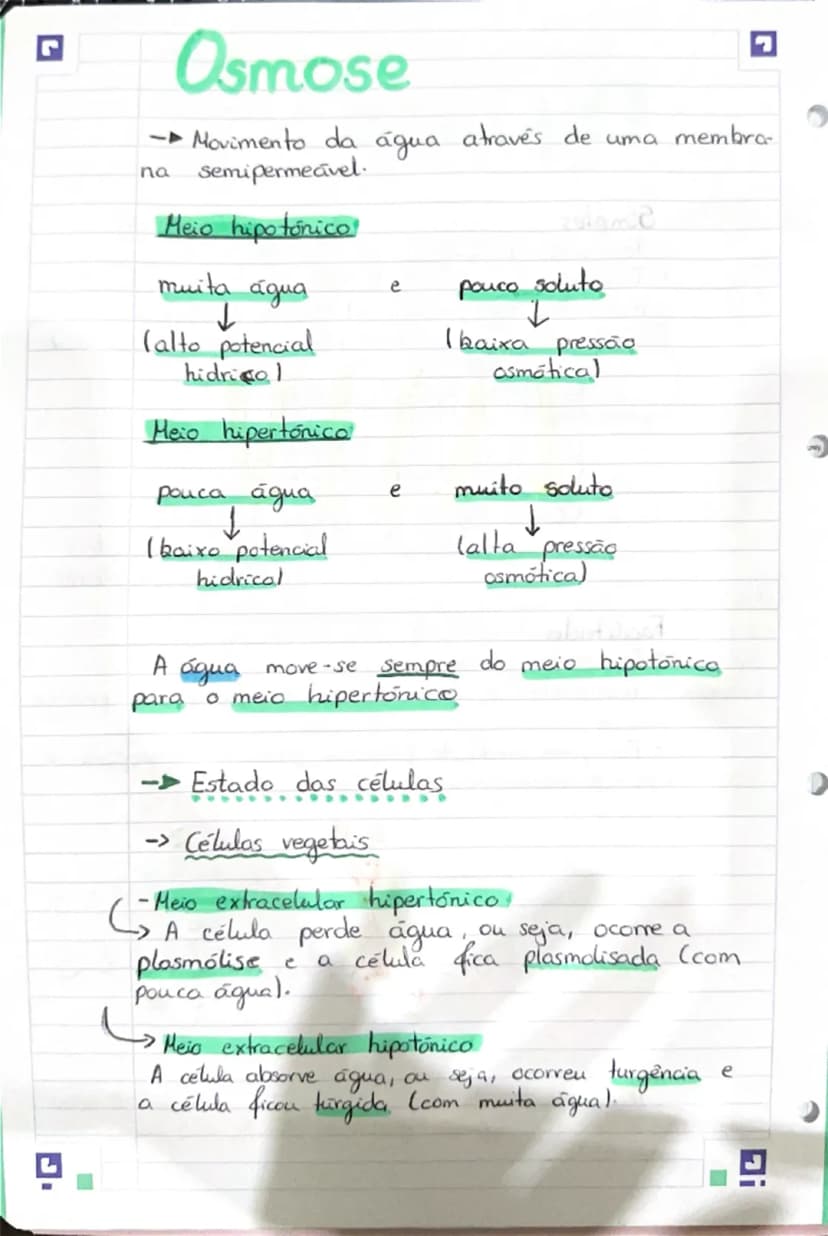 Osmose
→ Movimento da água através de uma membra-
na semipermeável.
Meio hipotónico
muita água e pouco soluto
↓ ↓
(alto potencial (baixa pressão
hidrico) osmótica)
Meio hipertónico
pouca água e muito soluto
↓ ↓
(baixo potencial (alta pressão
hidrica) osmótica)
A água move-se sempre do meio hipotónico
para o meio hipertónico
→ Estado das células
→ Células vegetais
- Meio extracelular hipertónico
↳ A célula perde água, ou seja, ocorre a
plasmólise e a célula fica plasmolisada (com
pouca água).
↳ Meio extracelular hipotónico
A célula absorve água, ou seja, ocorreu turgência e
a célula ficou túrgida (com muita água).